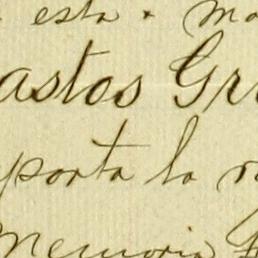 esta . Ma
astos Gr
porta la
Memoria